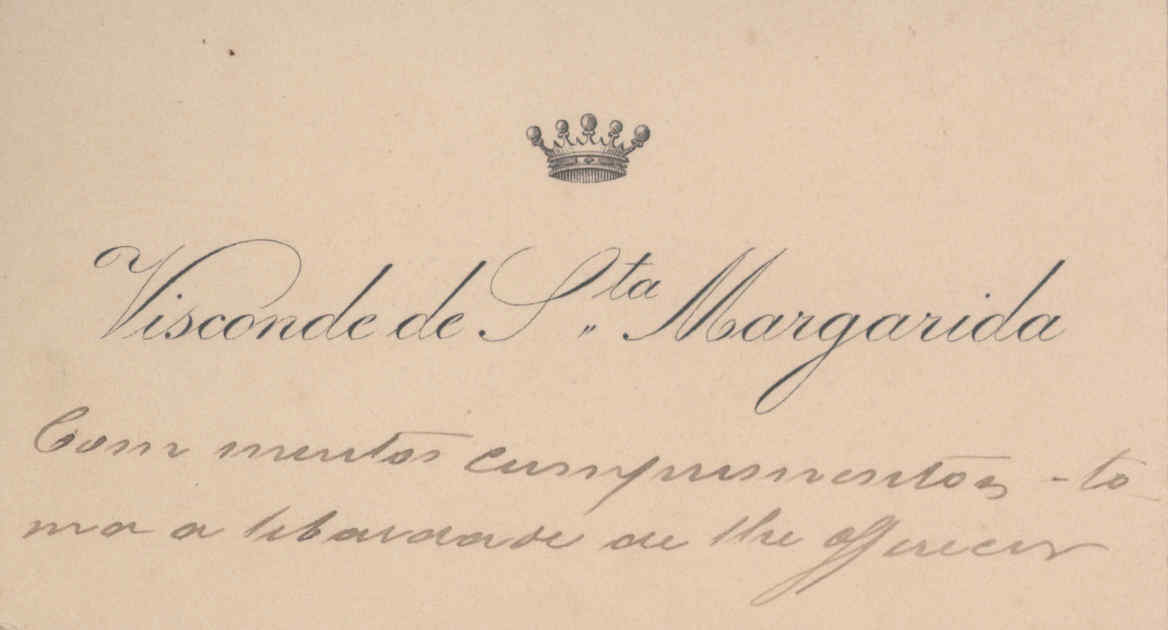 Visconde de S.ta Margarida
Com muitos cumprimentos - to
ma a liberdade de lhe offerecer